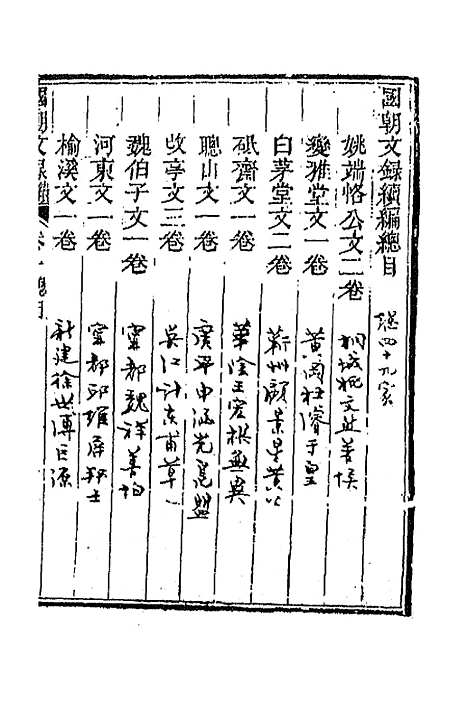 國朝文錄續編總目
總四十九家
姚端恪公文二卷
桐城姚文然若侯
變雅堂文一卷
黃岡杜濬于皇
白茅堂文二卷
蘄州顧景星黃公
砥齋文一卷
華陰王宏撰無異
聰山文一卷
廣平申涵光鳧盟
改亭文三卷
吳江計東甫草
魏伯子文一卷
寧都魏祥善伯
河東文一卷
寧都邱維屏邦士
榆溪文一卷
新建徐世溥巨源
國朝文錄續 卷 總目